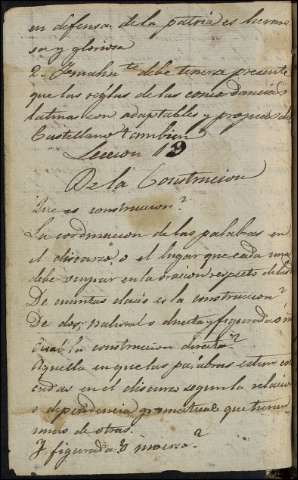 en defensa de la patria es hermo
sa y gloriosa
2ª debe tenerse presente
que las reglas de las concordancias
latinas son adaptables y propias del
Castellano tambien
Leccion 19
De la Construcion
Que es construccion?
La cordinacion de las palabras en
el discurso o el lugar que cada una
debe ocupar en la oracion respecto de las
De cuantas clases es la construccion?
De dos, natural o directa y figurada o in
Cual la construcion directa?
Aquella en que las palabras estan co
en el discurso segun la relacion
o dependencia gramatical que tienen
unas de otras.
Y figurada o inversa?